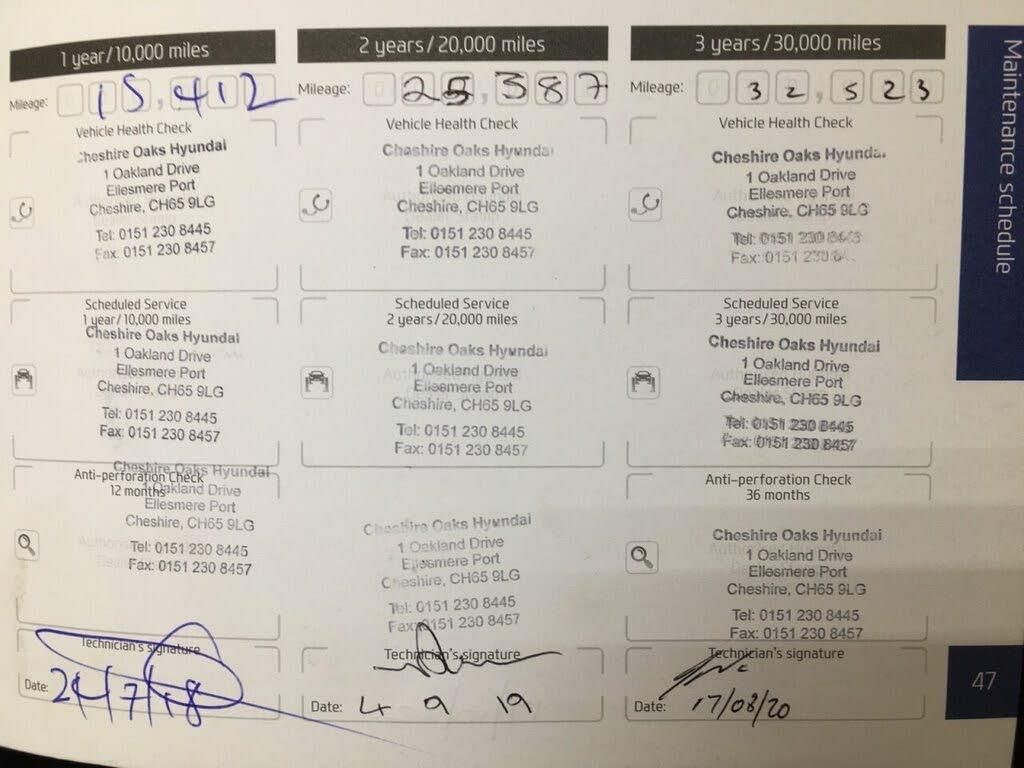 1 year/10,000 miles
Mileage: 15,412
Vehicle Health Check
Cheshire Oaks Hyundai
1 Oakland Drive
Ellesmere Port
Cheshire, CH65 9LG
Tel: 0151 230 8445
Fax: 0151 230 8457
Scheduled Service
1 year/10,000 miles
Cheshire Oaks Hyundai
1 Oakland Drive
Ellesmere Port
Cheshire, CH65 9LG
Tel: 0151 230 8445
Fax: 0151 230 8457
Anti-perforation Check
12 months
Cheshire Oaks Hyundai
1 Oakland Drive
Ellesmere Port
Cheshire, CH65 9LG
Tel: 0151 230 8445
Fax: 0151 230 8457
Technician's signature
Date: 24/7/18
2 years/20,000 miles
Mileage: 0 25,387
Vehicle Health Check
Cheshire Oaks Hyundai
1 Oakland Drive
Ellesmere Port
Cheshire, CH65 9LG
Tel: 0151 230 8445
Fax: 0151 230 8457
Scheduled Service
2 years/20,000 miles
Cheshire Oaks Hyundai
1 Oakland Drive
Ellesmere Port
Cheshire, CH65 9LG
Tel: 0151 230 8445
Fax: 0151 230 8457
Cheshire Oaks Hyundai
1 Oakland Drive
Ellesmere Port
Cheshire, CH65 9LG
Tel: 0151 230 8445
Fax: 0151 230 8457
Technician's signature
Date: 4 9 19
3 years/30,000 miles
Mileage: 0 32,523
Vehicle Health Check
Cheshire Oaks Hyundai
1 Oakland Drive
Ellesmere Port
Cheshire, CH65 9LG
Tel: 0151 230
Fax: 0151 230
Scheduled Service
3 years/30,000 miles
Cheshire Oaks Hyundai
1 Oakland Drive
Ellesmere Port
Cheshire, CH65 9LG
Tel: 0151 230 8445
Fax: 0151 230 8457
Anti-perforation Check
36 months
Cheshire Oaks Hyundai
1 Oakland Drive
Ellesmere Port
Cheshire, CH65 9LG
Tel: 0151 230 8445
Fax: 0151 230 8457
Technician's signature
Date: 17/08/20
Maintenance schedule
47